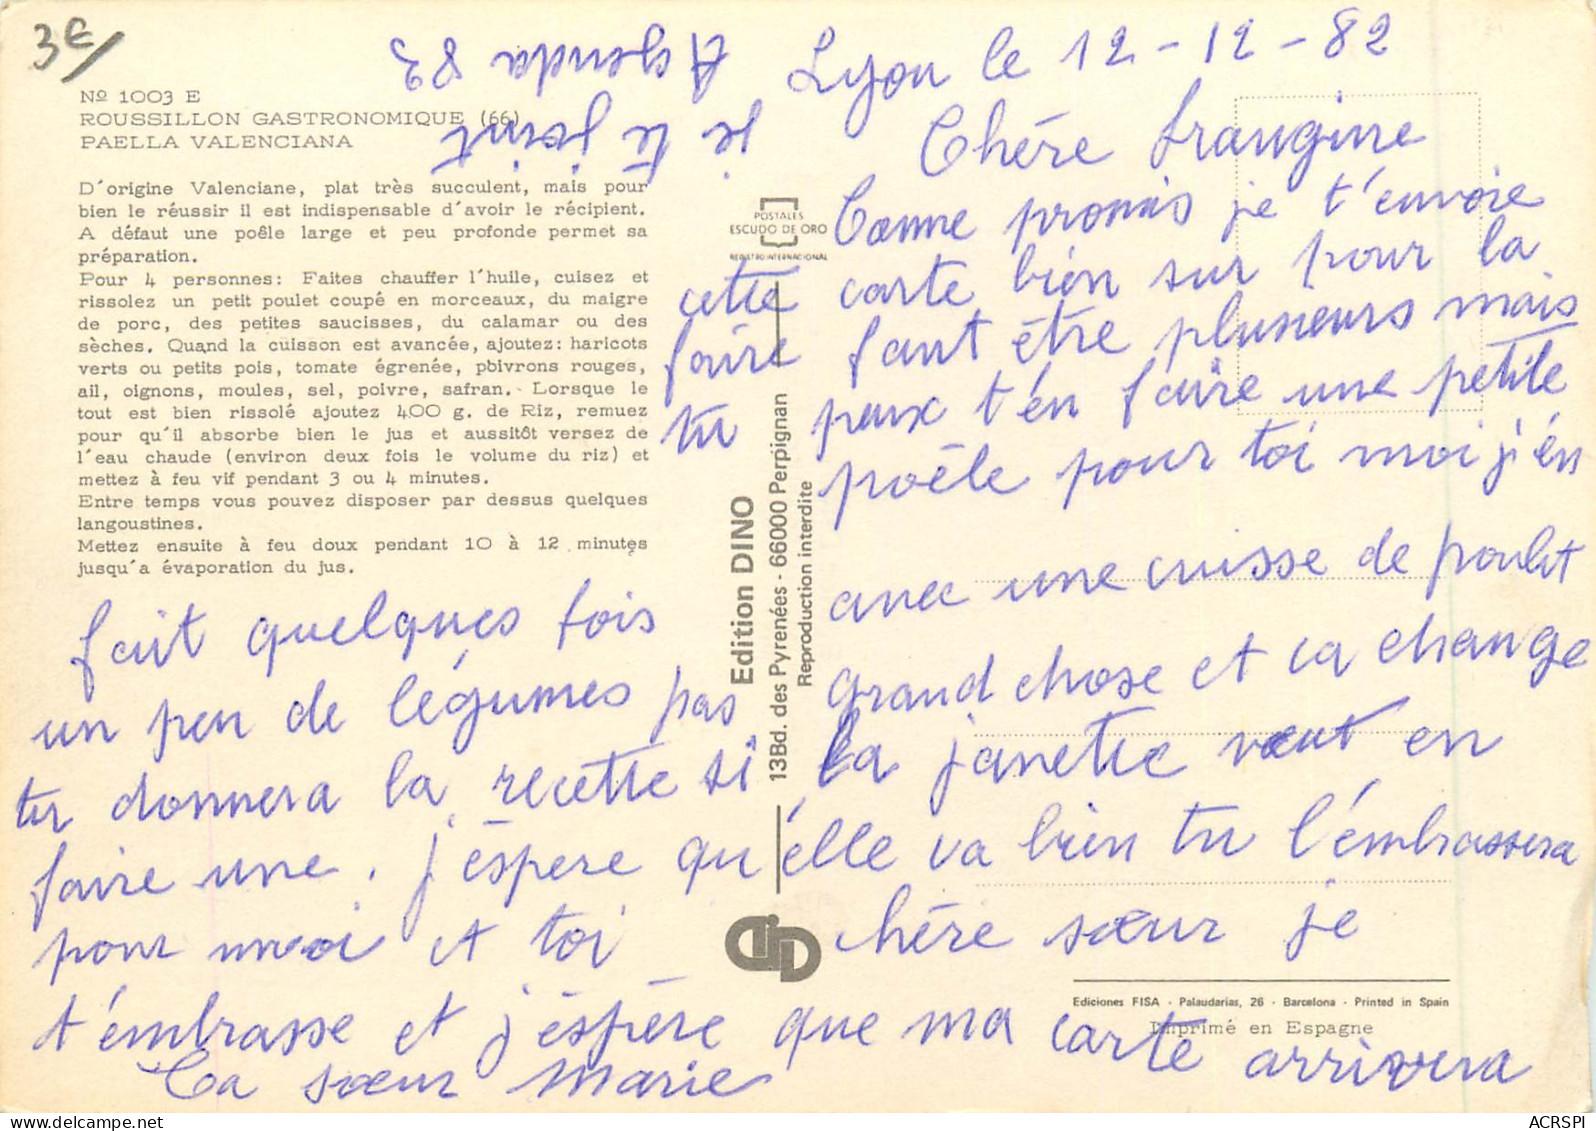 3€/
Nº 1003 E
ROUSSILLON GASTRONOMIQUE (66)
PAELLA VALENCIANA
D'origine Valenciane, plat très succulent, mais pour
bien le réussir il est indispensable d'avoir le récipient.
A défaut une poêle large et peu profonde permet sa
préparation.
Pour 4 personnes: Faites chauffer l'huile, cuisez et
rissolez un petit poulet coupé en morceaux, du maigre
de porc, des petites saucisses, du calamar ou des
sèches. Quand la cuisson est avancée, ajoutez: haricots
verts ou petits pois, tomate égrenée, pbivrons rouges,
ail, oignons, moules, sel, poivre, safran. Lorsque le
tout est bien rissolé ajoutez 400 g. de Riz, remuez
pour qu'il absorbe bien le jus et aussitôt versez de
l'eau chaude (environ deux fois le volume du riz) et
mettez à feu vif pendant 3 ou 4 minutes.
Entre temps vous pouvez disposer par dessus quelques
langoustines.
Mettez ensuite à feu doux pendant 10 à 12 minutes
jusqu'a évaporation du jus.
POSTALES
ESCUDO DE ORO
REGISTRO INTERNACIONAL
Edition DINO
13Bd. des Pyrenées - 66000 Perpignan
Reproduction interdite
Lyon le 12-12-82
Chére frangine
Comme promis je t'envoie
cette carte bien sur pour la
faire faut être plusieurs mais
tu peux t'én faire une petite
poêle pour toi moi j'én
fait quelques fois avec une cuisse de poulet
un peu de légumes pas grand chose et ca change
tu donnera la recette si la janette veut en
faire une. j'éspere qu'élle va bien tu l'émbrassera
pour moi et toi chére sœur je
t'émbrasse et j'éspére que ma carte arrivera
Ta sœur Marie
je te joint
Agenda 83
DID
Ediciones FISA - Palaudarias, 26 - Barcelona - Printed in Spain
Imprimé en Espagne
ACRSPI